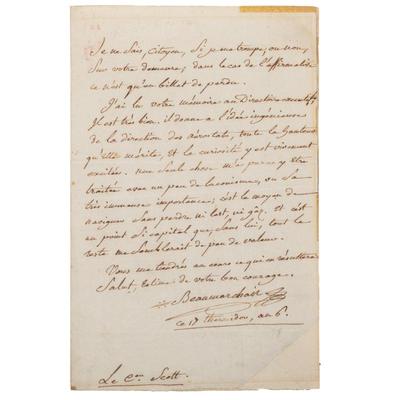 Je ne sais, citoyen, si je me trompe, ou non,
sur votre demeure; dans le cas de l'affirmative
ce n'est qu'un billet de perdu.
J'ai lu votre mémoire au Directoire executif,
Il est très bien. il donne a l'idée ingénieuse
de la direction des aërostats, toute la hauteur
qu'elle mérite, et la curiosité y est vivement
excitée. une seule chose m'a paru y être
traitée avec un peu de laconisme, vu sa
très immense importance; c'est le moyen de
naviguer sans perdre ni lest, ni gaz, et c'est
un point si capital que, sans lui, tout le
reste me semblerait de peu de valeur.
Vous me tiendrés au cours ce qui en résultera
Salut, estime de votre bon courage.
Beaumarchais
ce 17 thermidor, an 6.
Le Cen Scott.